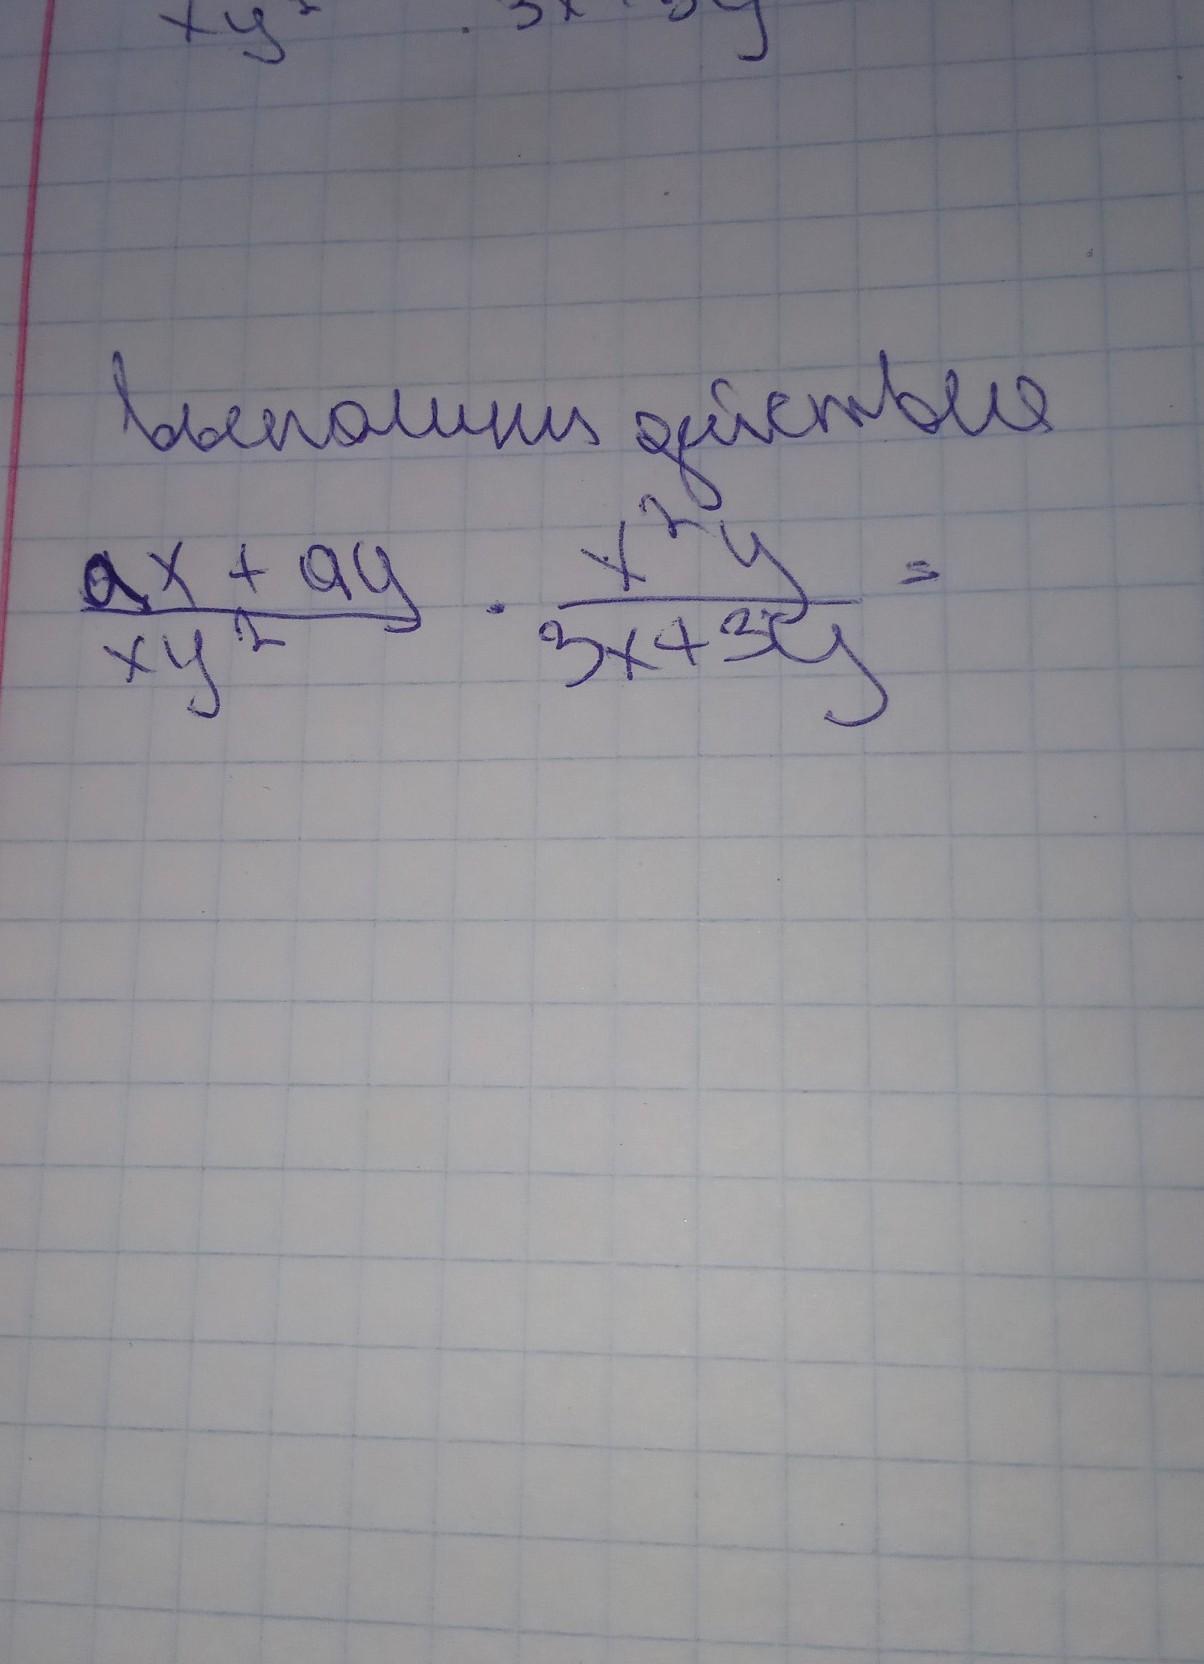 xy² . 3x + 3y
Выполнил действие
ax + ay / xy² · x²y / 3x+3y =